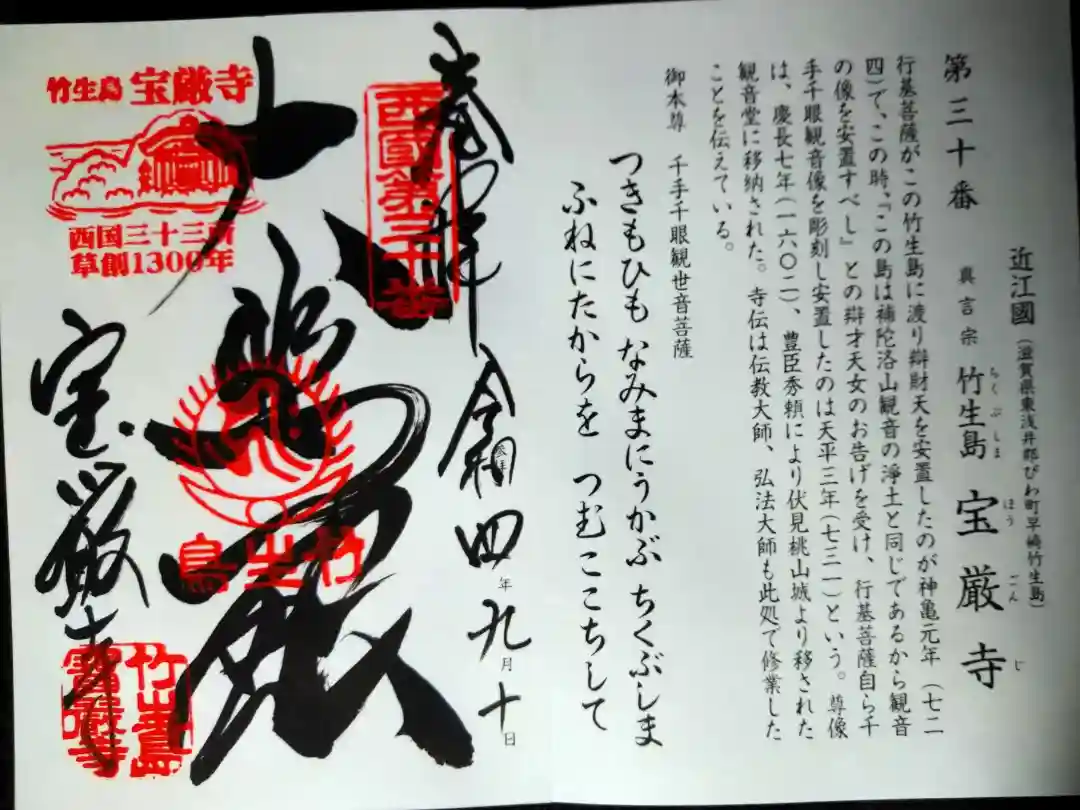 第三十番
近江國(滋賀県東浅井郡びわ町早崎竹生島)
真言宗 竹生島 宝厳寺
ちくぶしま
ほうごんじ
行基菩薩がこの竹生島に渡り辯財天を安置したのが神亀元年(七二
四)で、この時、「この島は補陀洛山観音の浄土と同じであるから観音
の像を安置すべし」との辯才天女のお告げを受け、行基菩薩自ら千
手千眼観音像を彫刻し安置したのは天平三年(七三一)という。尊像
は、慶長七年(一六〇二)、豊臣秀頼により伏見桃山城より移された
観音堂に移納された。寺伝は伝教大師、弘法大師も此処で修業した
ことを伝えている。
御本尊 千手千眼観世音菩薩
つきもひも なみまにうかぶ ちくぶしま
ふねにたからを つむここちして
奉拝
令和四年九月十日
参拝
西國第三十番
大悲殿
竹生島
宝厳寺
竹生島 宝厳寺
西国三十三所
草創1300年
竹生島
寶厳寺